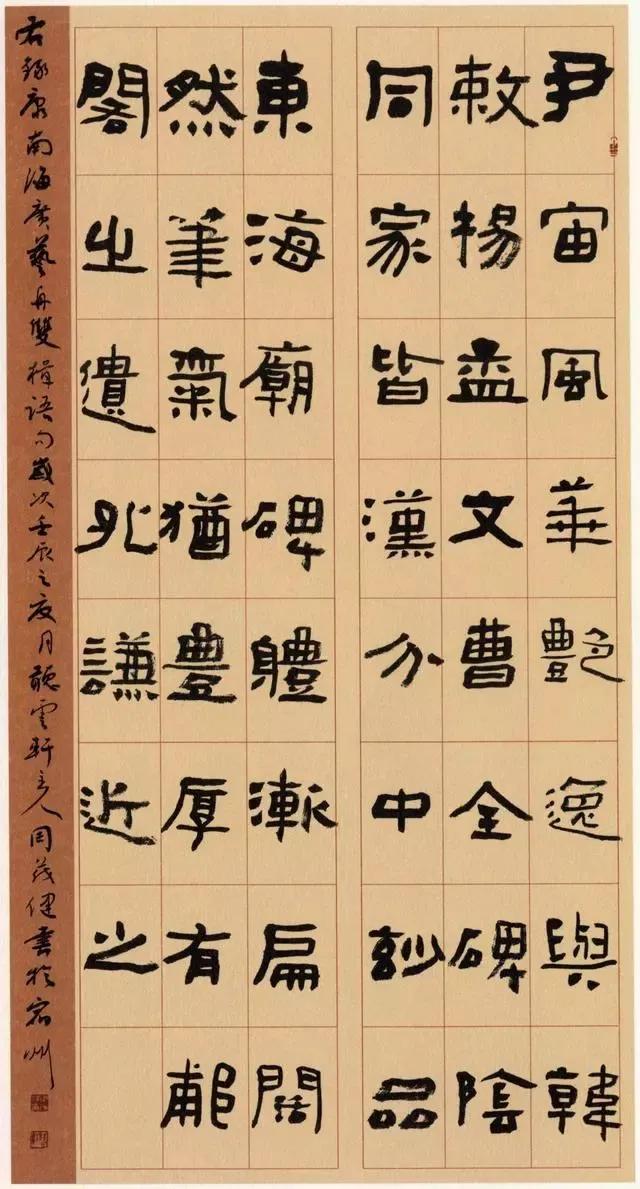 尹宙風華艷逸與韓
敕楊孟文曹全碑陰
同家皆漢分中玅品
東海廟碑體漸扁闊
然筆氣猶豐厚有郙
閣之遺孔謙近之
右錄康南海廣藝舟雙楫語句歲次壬辰之夏月聽雲軒主人周茂健書於宿州